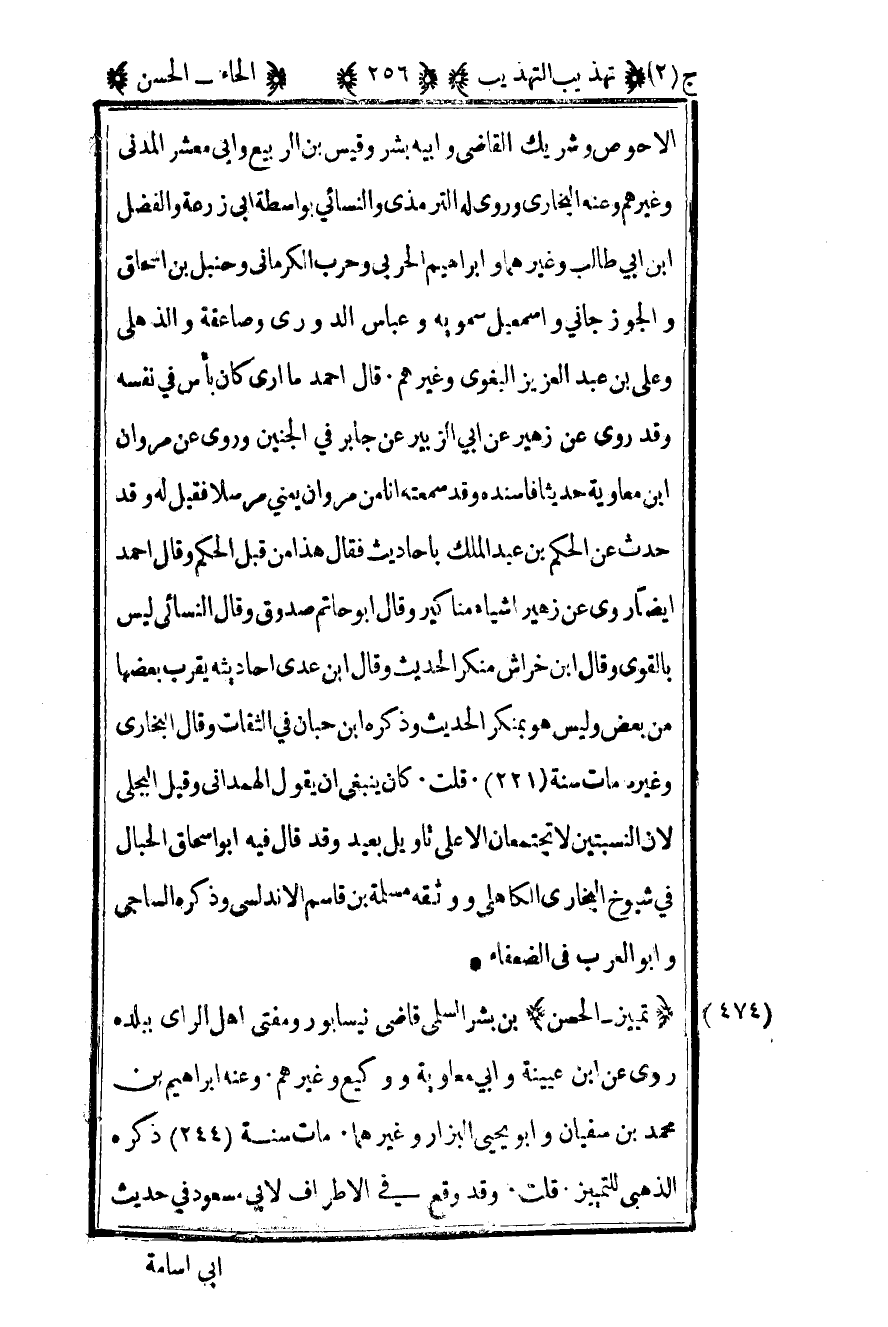 ج (٢) ﴿ تهذيب التهذيب ﴾ ﴿ ٢٥٦ ﴾ ﴿ الحاء ـ الحسن ﴾
الاحوص وشريك القاضى وابيه بشر وقيس بن الربيع وابى معشر المدنى
وغيرهم وعنه البخارى وروى له الترمذى والنسائي بواسطة ابى زرعة والفضل
ابن ابي طالب وغيرهما و ابراهيم الحربى وحرب الكرمانى وحنبل بن اسحاق
و الجوزجاني و اسمعيل سمويه و عباس الدورى وصاعقة و الذهلى
وعلى بن عبد العزيز البغوى وغيرهم · قال احمد ما ارى كان بأس في نفسه
وقد روى عن زهير عن ابي الزبير عن جابر في الجنين وروى عن مروان
ابن معاوية حديثا فاسنده وقد سمعته انا من مروان يعني مرسلا فقيل له وقد
حدث عن الحكم بن عبد الملك باحاديث فقال هذا من قبل الحكم وقال احمد
ايضاً روى عن زهير اشياء مناكير وقال ابو حاتم صدوق وقال النسائى ليس
بالقوى وقال ابن خراش منكر الحديث وقال ابن عدى احاديثه يقرب بعضها
من بعض وليس هو بمنكر الحديث وذكره ابن حبان في الثقات وقال البخارى
وغيره مات سنة (٢٢١) · قلت · كان ينبغي ان يقول الهمدانى وقيل البجلى
لان النسبتين لا تجتمعان الا على تاويل بعيد وقد قال فيه ابو اسحاق الحبال
في شيوخ البخارى الكاهلى و وثقه مسلمة بن قاسم الاندلسى وذكره الساجى
و ابو العرب فى الضعفاء •
(٤٧٤) ﴿ تمييز ـ الحسن ﴾ بن بشر السلمى قاضى نيسابور ومفتى اهل الراى ببلده
روى عن ابن عيينة و ابي معاوية و وكيع وغيرهم · وعنه ابراهيم بن
محمد بن سفيان و ابو يحيى البزار و غيرهما · مات سنة (٢٤٤) ذكره
الذهبى للتمييز · قلت · وقد وقع في الاطراف لابي مسعود في حديث
ابي اسامة